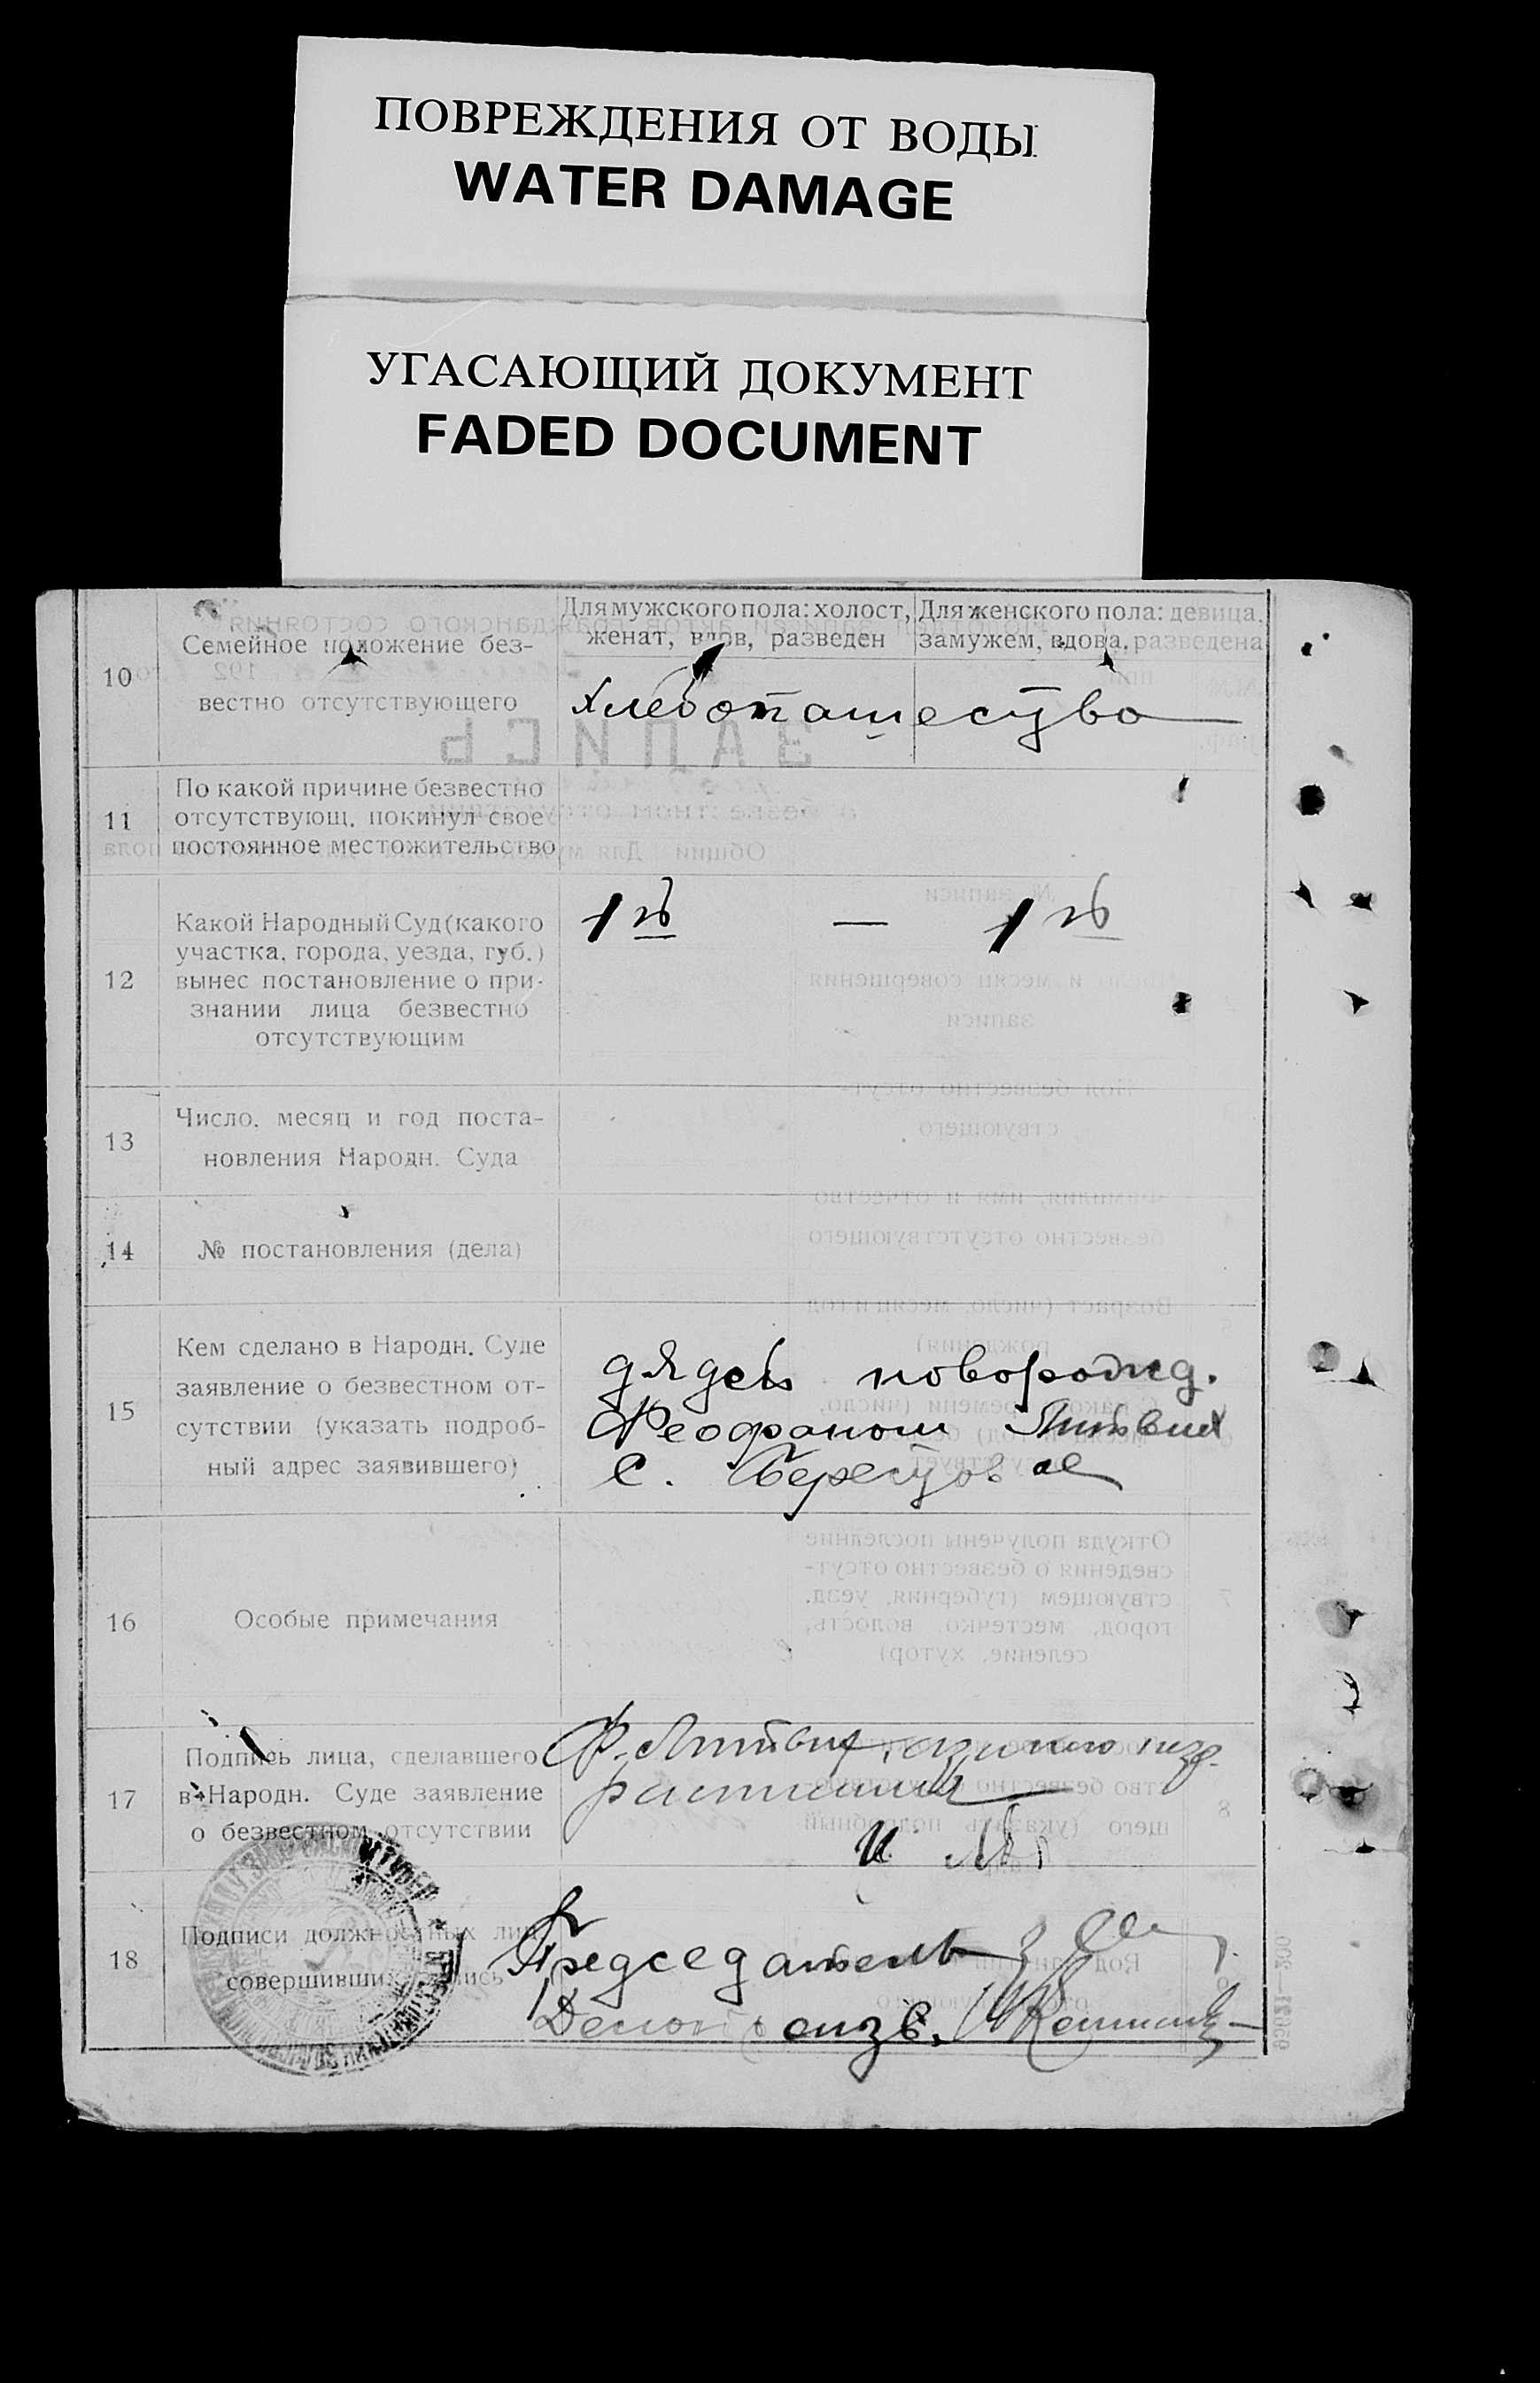 ПОВРЕЖДЕНИЯ ОТ ВОДЫ
WATER DAMAGE
УГАСАЮЩИЙ ДОКУМЕНТ
FADED DOCUMENT
10
Семейное положение без-
вестно отсутствующего
Для мужского пола: холост,
женат, вдов, разведен
Для женского пола: девица,
замужем, вдова, разведена
Хлебопашество
11
По какой причине безвестно
отсутствующ. покинул свое
постоянное местожительство
12
Какой Народный Суд (какого
участка, города, уезда, губ.)
вынес постановление о при-
знании лица безвестно
отсутствующим
1й — 1й
13
Число, месяц и год поста-
новления Народн. Суда
14
№ постановления (дела)
15
Кем сделано в Народн. Суде
заявление о безвестном от-
сутствии (указать подроб-
ный адрес заявившего)
дядей новорожд.
Феофаном Литвин
с. Берестовое
16
Особые примечания
17
Подпись лица, сделавшего
в Народн. Суде заявление
о безвестном отсутствии
Ф. Литвин
18
Подписи должностных лиц
совершивших запись
Председатель